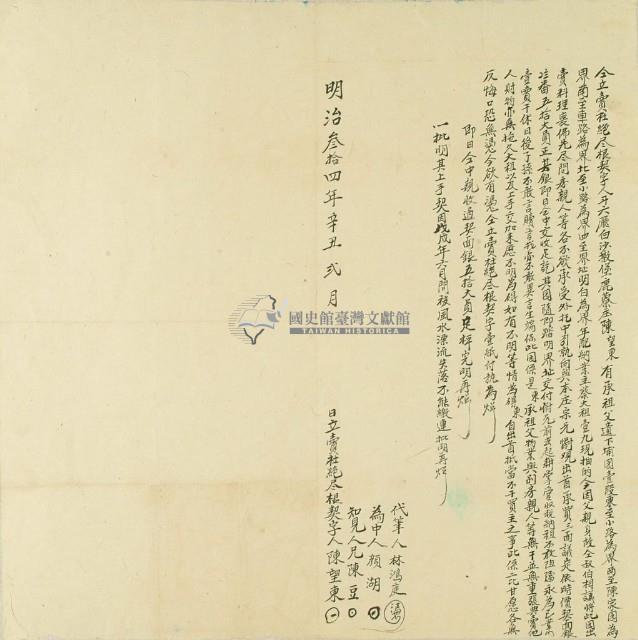 仝立賣杜絕尽根契字人斗六廳白沙墩堡鹿藔庄陳望東有承祖父遺下埔園壹段東至小路為界西至陳家園為
界南至車路為界北至小路為界四至界址明白為界年配納業主蔡大租
賣料理喪佛先尽問房親人等各不欲承受外托中引就向與本庄宗元 出首承買三面議定依時價契面銀
五拾大員正其銀即日仝中交收足訖其園隨即踏明界址交付 前去起耕掌管收稅納租不敢阻擋永為己業
壹賣千休日後子孫不敢言贖言找亦不敢異言生端保此園係是東承祖父物業與別房親人等無干並無重張典賣他
人財物亦無拖欠大租以及上手交加來歷不明為碍如有不明等情為碍東自出首抵當不干買主之事此係二比甘愿各無
反悔口恐無憑今欲有憑仝立賣杜絕尽根契字壹紙付執為炤
即日仝中親收過契面銀五拾大員足秤完明再炤
一批明其上手契因戊戌年六月間被風水漂流失落不能繳連批明再炤
國史館臺灣文獻館
TAIWAN HISTORICA
代筆人林鴻
為中人顏湖
知見人兄陳豆
明治叁拾四年辛丑弍月 日立賣杜絕尽根契字人陳望東